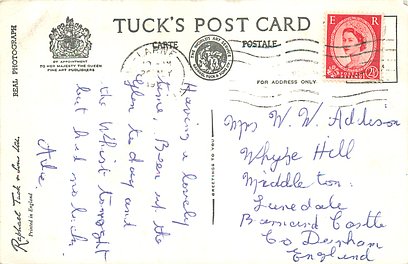 TUCK'S POST CARD
CARTE POSTALE
REAL PHOTOGRAPH
BY APPOINTMENT
TO HER MAJESTY THE QUEEN
FINE ART PUBLISHERS
LARNE
E R
2½D
FOR ADDRESS ONLY
GREETINGS TO YOU
Raphael Tuck & Sons Ltd.
Printed in England
Having a lovely
time Been up the
Glen to day and
the Whist tonight
but had no luck.
Mrs W. W. Addison
Hill
Middleton
Lunedale
Barnard Castle
Co Durham
England